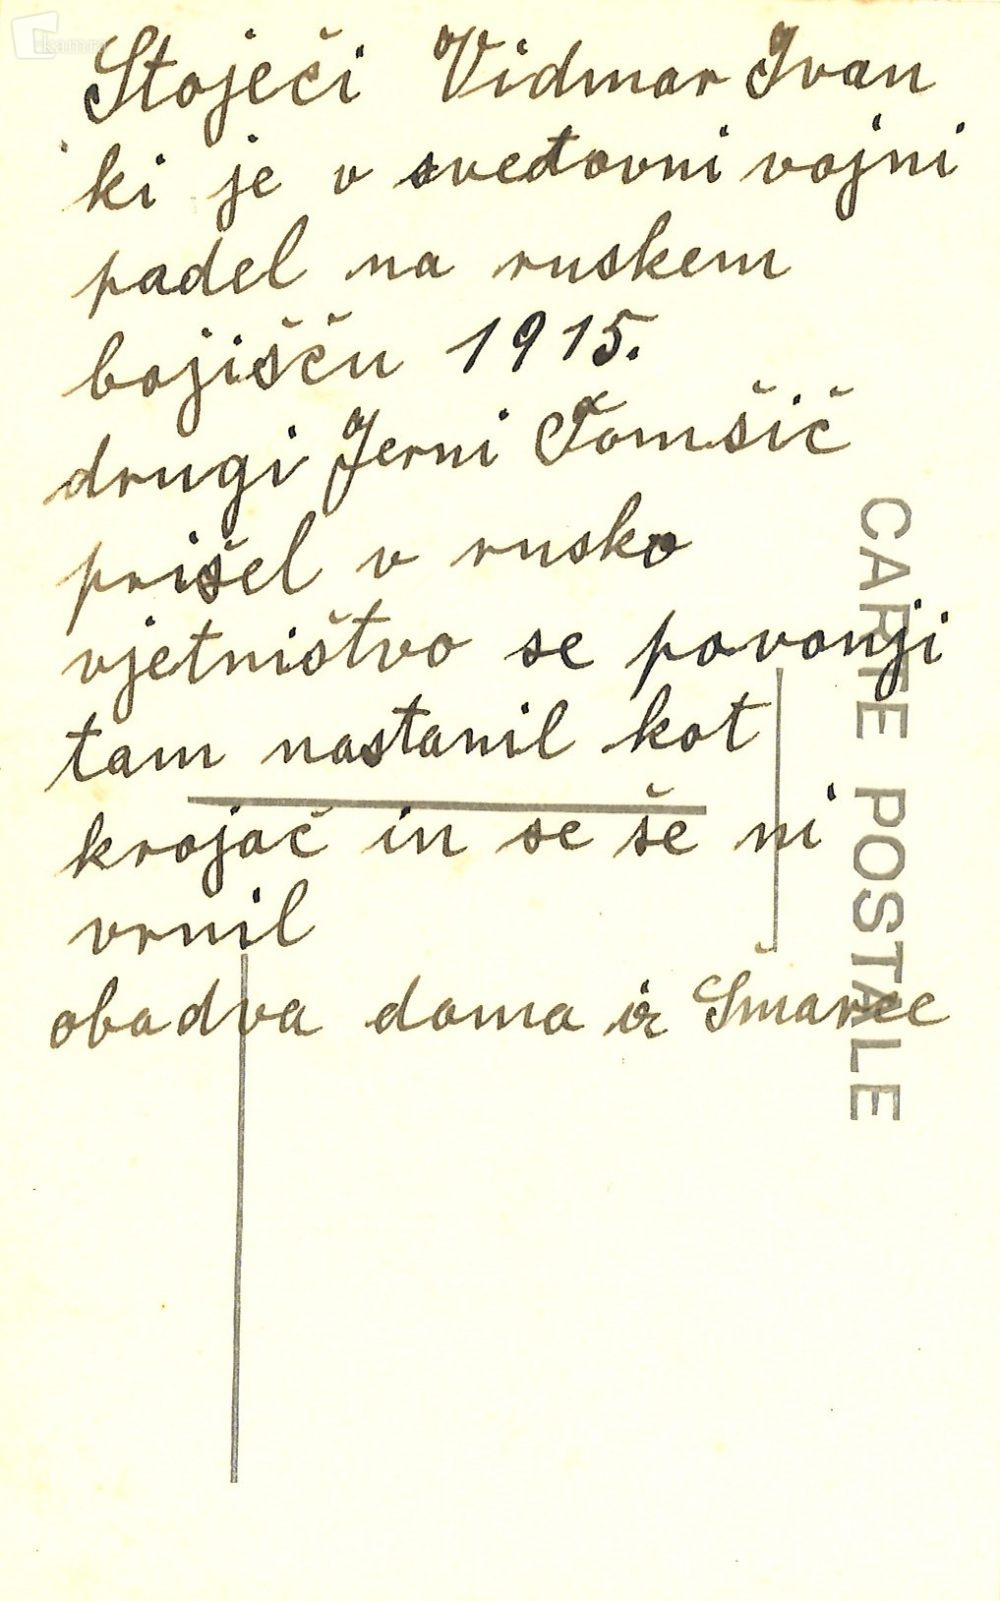 kamra
Stoječi Vidmar Ivan
ki je v svetovni vojni
padel na ruskem
bojišču 1915.
drugi Jerni Tomšič
prišel v rusko
vjetništvo se povonji
tam nastanil kot
krojač in se še ni
vrnil
obadva doma iz Šmarce
CARTE POSTALE